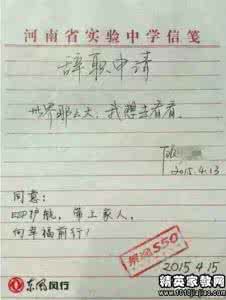 河南省实验中学信笺
辞职申请
世界那么大，我想去看看。
2015.4.13
同意：
ESP护航，带上家人，
向幸福前行！
景逸S50
2015 4 15
东风风行
精英家教网
www.1010jiajiao.com